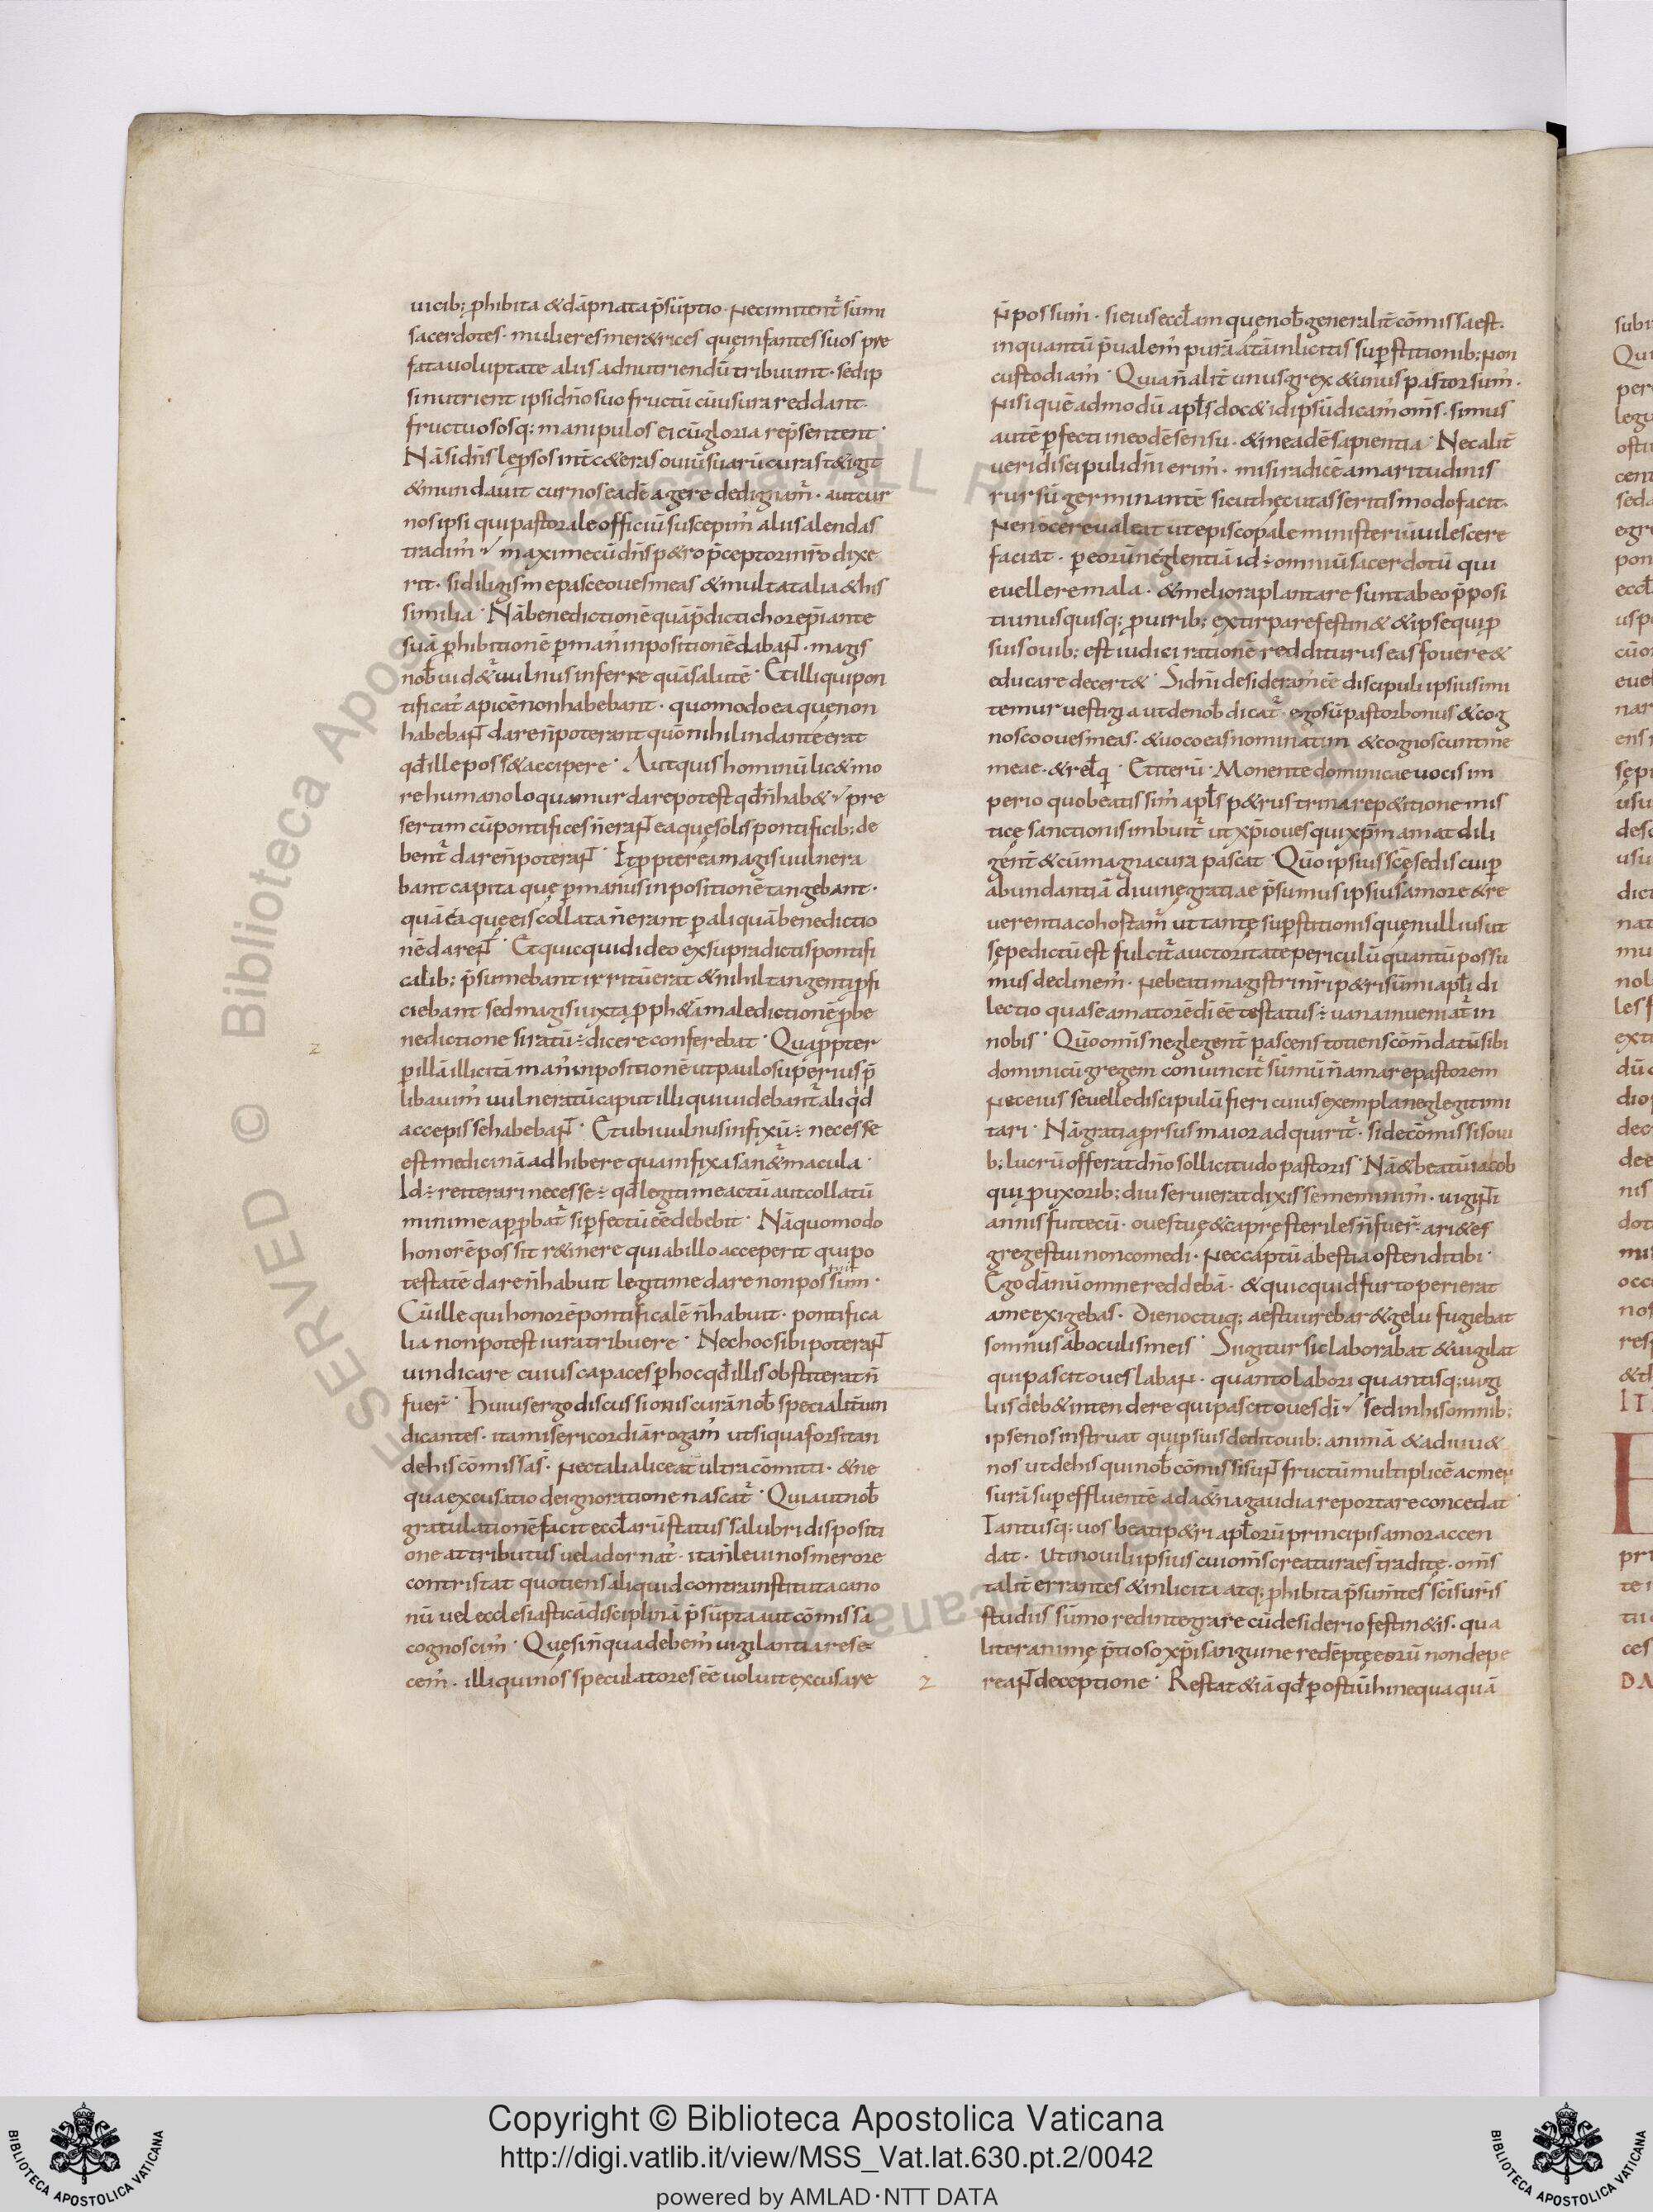 uicib; ꝓhibita & dāpnata p̄sūptio. Nec imitent̄ sūmi
sacerdotes. mulieres mer&rices quę infantes suos pre
fata uoluptate aliis ad nutriendū tribuunt. sed ip
si nutrient ipsi dn̄o suo fructū cū usura reddant.
fructuososq: manipulos ei cū gloria rep̄sentent.
Nā si dn̄s lepsos int̄ c&eras ouiū suarū curas t&igit
& mundauit cur nos eadē agere dedignam̄. aut cur
nos ipsi qui pastorale officiū suscepim̄ aliis alendas
tradim̄? maxime cū dn̄s p&ro p̄ceptori nr̄o dixe
rit. si diligis me pasce oues meas & multa talia & his
similia. Nā benedictionē quā p̄dicti chorep̄i ante
suā ꝓhibitionē p man̄ inpositionē dabant. magis
nob̄ uid&̄ uulnus inferre quā salutē. Et illi qui pon
tificat̄ apicē non habebant. quomodo ea quę non
habebant dare n̄ poterant quō nihil in dante erat
qd̄ ille poss& accipere. Aut quis hominū lic& mo
re humano loquamur dare potest qd̄ n̄ hab&? pre
sertim cū pontifices n̄ erant ea quę solis pontificib; de
bent̄ dare n̄ poterant. Et ꝓpterea magis uulnera
bant capita quę p manus inpositionē tangebant.
quā ea quę eis collata n̄ erant p aliquā benedictio
nē darent. Et quicquid ideo ex supradictis pontifi
calib; p̄sumebant irritū erat & nihil tangenti ꝓfi
ciebant sed magis iuxta ꝓph&ā maledictionē ꝓ be
nedictione si ratū ÷ dicere conferebat. Quapropter
p illā illicitā man̄ inpositionē ut paulo superius p̄
libauim̄ uulneratū caput illi qui uidebant̄ aliqd
accepisse habebant. Et ubi uulnus infixū ÷ necesse
est medicinā adhibere qua infixa san&̄ macula.
Id ÷ reiterari necesse ÷ qd̄ legitime actū aut collatū
minime approbat̄ si ꝑfectū ēē debebit. Nā quomodo
honorē possit r&inere qui ab illo acceperit qui po
testatē dare n̄ habuit legitime dare non possum.
Cū ille qui honorē pontificalē n̄ habuit. pontifica
lia non potest iura tribuere. Nec hoc sibi poterant
uindicare cuius capaces p hoc qd̄ illis obstiterat n̄
fuer̄. Huius ergo discussionis curā nob̄ specialit̄ iun
dicantes. ita misericordiā rogam̄ ut si qua forsitan
de his cōmissas. Nec talia liceat ultra cōmitti. & ne
qua excusatio de ignoratione nascat̄. Quia ut nob̄
gratulationē facit eccl̄arū status salubri dispositi
one attributus uel adornat̄. ita n̄ leui nos merore
contristat quotiens aliquid contra instituta cano
nū uel ecclesiasticā disciplinā p̄sūpta aut cōmissa
cognoscim̄. Quę si n̄ qua debem̄ uigilantia rese
cem̄. illi qui nos speculatores ēē uoluit excusare
N̄ possum̄. si eius eccl̄am quę nob̄ generalit̄ cōmissa est.
in quantū p̄ualem̄ purā a tā inlicitis supstitionib; non
custodiam̄. Quia n̄ alit̄ unus grex & unus pastor sum̄.
Nisi quē ad modū apl̄s doc& id ipsū dicam̄ om̄s. simus
autē ꝑfecti in eodē sensu. & in eadē sapientia. Nec alit̄
ueri discipuli dn̄i erim̄. nisi radicē amaritudinis
rursū germinantē sicut hęc ut asseritis modo facit.
Ne nocere ualeat ut episcopale ministeriū uilescere
faciat. p eorū neglentiā id ÷ omniū sacerdotū qui
euellere mala. & meliora plantare sunt ab eo p̄posi
ti unusquisq; ꝓ uirib; extirpare festin& & ipse qui ꝓ
suis ouib; est iudici rationē redditurus eas fouere &
educare decert&. Si dn̄i desideram̄ ēē discipuli ipsius imi
temur uestigia ut de nob̄ dicat̄. ego sū pastor bonus & cog
nosco oues meas. & uoco eas nominatim & cognoscunt me
meae. & rel̄q. Et iterū. Monente dominicae uocis im
perio quo beatissim̄ apl̄s p&rus trina rep&itione mis
ticę sanctionis imbuit̄ ut xp̄i oues qui xp̄m amat dili
gent̄ & cū magna cura pascat. Quo ipsius scę sedis cui p
abundantiā diuinę gratiae p̄sumus ipsius amore & re
uerentia cohostam̄ ut tantę supstitionis quę nullius ut
sępe dictū est fulcit̄ auctoritate periculū quantū possu
mus declinem̄. Ne beati magistri nr̄i p&ri sūmi apl̄i di
lectio qua se amatorē dī ēē testatus ÷ uana inueniat̄ in
nobis. Quo om̄is neglegent̄ pascens totiens cōmdatū sibi
dominicū gregem conuincit̄ sūmū n̄ amare pastorem
Nec eius se uelle discipulū fieri cuius exempla neglegit imi
tari. Nā gratia ꝓrsus maior adquirit̄. si de cōmissis oui
b; lucrū offerat dn̄o sollicitudo pastoris. Nā & beatū iacob
qui ꝓ uxorib; diu seruierat dixisse meminim̄. uiginti
annis fui tecū. oues tuę & caprę steriles n̄ fuer̄. ari&es
gregis tui non comedi. Nec captū a bestia ostendi tibi.
Ego damnū omne reddebā. & quicquid furto perierat
a me exigebas. Die noctuq; aestu urebar & gelu fugiebat
somnus ab oculis meis. Si igitur sic laborabat & uigilat
qui pascit oues laban. quanto labori quantisq; uigi
liis deb& intendere qui pascit oues dī? sed in his omnib:
ipse nos instruat qui ipsius dedit ouib: animā & adiuu&
nos ut de his qui nob̄ cōmissi sunt fructū multiplicē ac men
surā supeffluentē ad a&̄na gaudia reportare concedat
Tantusq: uos beati p&ri apl̄orū principis amor accen
dat. Ut in ouili ipsius cui om̄s creaturae st̄ traditę. om̄s
talit̄ errantes & inlicita atq; ꝓhibita p̄sum̄tes scīs uris
studiis sūmo redintegrare cū desiderio festin&is. qua
liter animę p̄tioso xp̄i sanguine redēptę eorū non depe
reant deceptione. Restat &iā qd̄ p ostiū hi nequaquā
Copyright © Biblioteca Apostolica Vaticana
http://digi.vatlib.it/view/MSS_Vat.lat.630.pt.2/0042
powered by AMLAD·NTT DATA
BIBLIOTECA APOSTOLICA VATICANA
BIBLIOTECA APOSTOLICA VATICANA